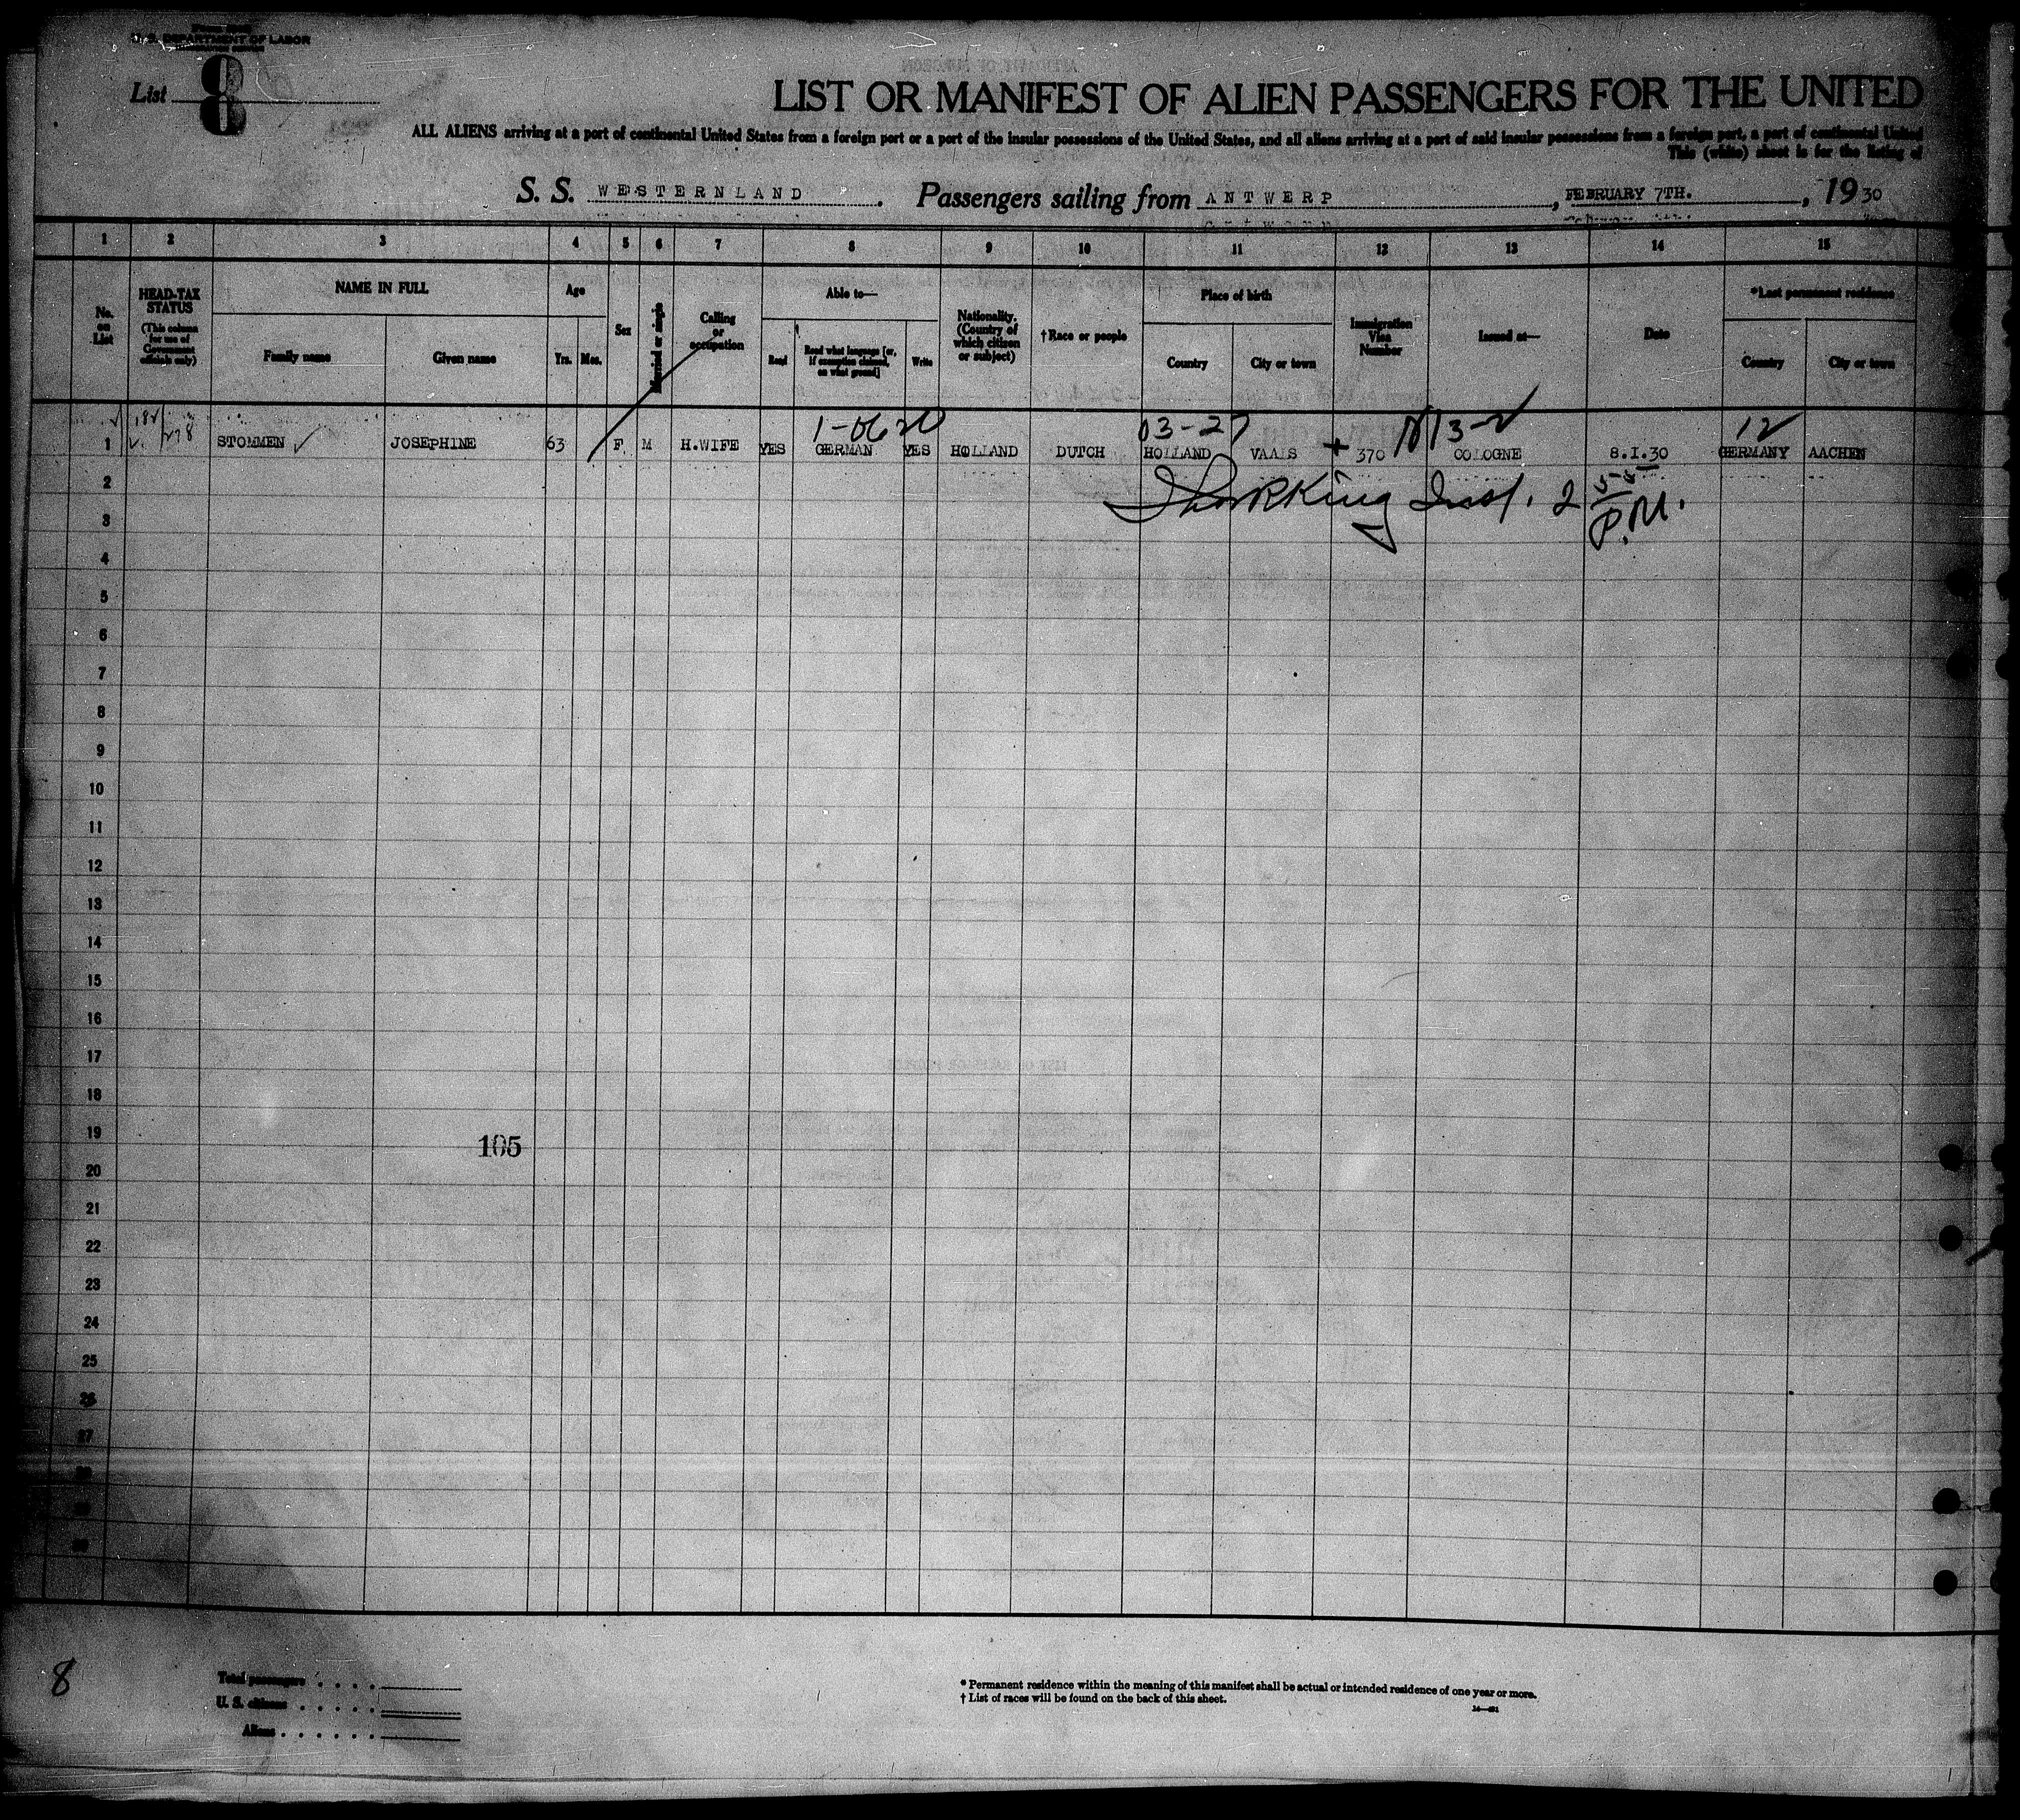 U. S. DEPARTMENT OF LABOR
List 8
LIST OR MANIFEST OF ALIEN PASSENGERS FOR THE UNITED
ALL ALIENS arriving at a port of continental United States from a foreign port or a port of the insular possessions of the United States, and all aliens arriving at a port of said insular possessions from a foreign port, a port of continental United
This (white) sheet is for the listing of
S. S. WESTERNLAND. Passengers sailing from ANTWERP, FEBRUARY 7TH., 1930
1 2 3 4 5 6 7 8 9 10 11 12 13 14 15
No. on List
HEAD-TAX STATUS (This column for use of Government officials only)
NAME IN FULL
Family name
Given name
Age
Yrs. Mos.
Sex
Married or single
Calling or occupation
Able to—
Read
Read what language [or, if exemption claimed, on what ground]
Write
Nationality. (Country of which citizen or subject)
† Race or people
Place of birth
Country
City or town
Immigration Visa Number
Issued at—
Date
*Last permanent residence
Country
City or town
1-0620 03-27 12
1 STOMMEN JOSEPHINE 63 F M H.WIFE YES GERMAN YES HOLLAND DUTCH HOLLAND VAALS 370 COLOGNE 8.I.30 GERMANY AACHEN
2
3
4
5
6
7
8
9
10
11
12
13
14
15
16
17
18
19
105
20
21
22
23
24
25
26
27
28
29
30
8
Total passengers
U. S. citizens
Aliens
* Permanent residence within the meaning of this manifest shall be actual or intended residence of one year or more.
† List of races will be found on the back of this sheet.